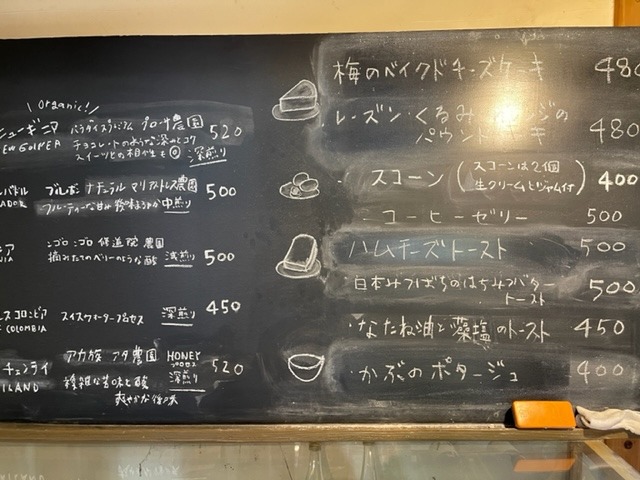 Organic!
ューギニア パラダイスプレミアム 農園 520
EW GUINEA チョコレートのような深みとコク
スイーツとの相性も◎ 深煎り
バドル ブルボンナチュラル 農園 500
ADOR フルーティーな甘み 中煎り
ニア ンゴロンゴロ 修道院 農園 500
NIA 摘みたてのベリーのような酸 浅煎り
ス コロンビア スイスウォータープロセス 深煎り 450
COLOMBIA
チェンライ アカ族 農園 HONEY 520
ILAND 複雑な甘味と酸 深煎り
爽やかな後味
梅のベイクドチーズケーキ 480
レーズン・くるみ の
パウンドケーキ 480
・スコーン(スコーンは2個 400
生クリームとジャム付)
・コーヒーゼリー 500
ハムチーズトースト 500
・日本みつばちのはちみつバター
トースト 500
・なたね油と藻塩のトースト 450
・かぶのポタージュ 400